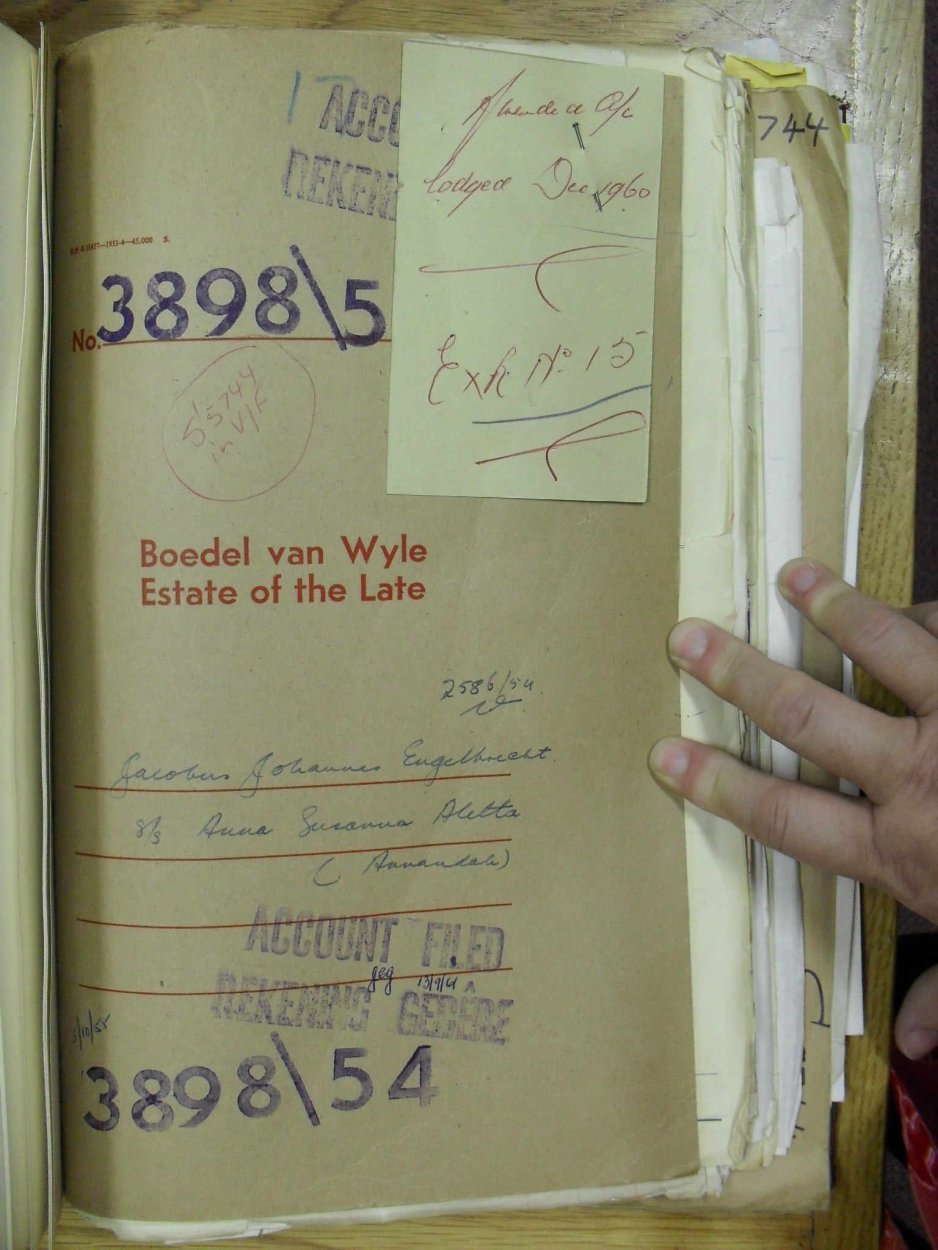 ACCO
REKENI
Amended A/c
lodged Dec 1960
Exh. No. 15
744
—1953-4—45,000. S.
No. 3898\5
5744
in V/F
Boedel van Wyle
Estate of the Late
2586/54
Jacobus Johannes Engelbrecht.
s/s Anna Susanna Aletta
(Annandale)
ACCOUNT FILED
geg 13/9/61
REKENING GEDÊRE
5/10/55
3898\54